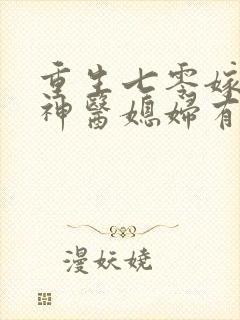 重生七零嫁
神醫媳婦有
漫妖嬈